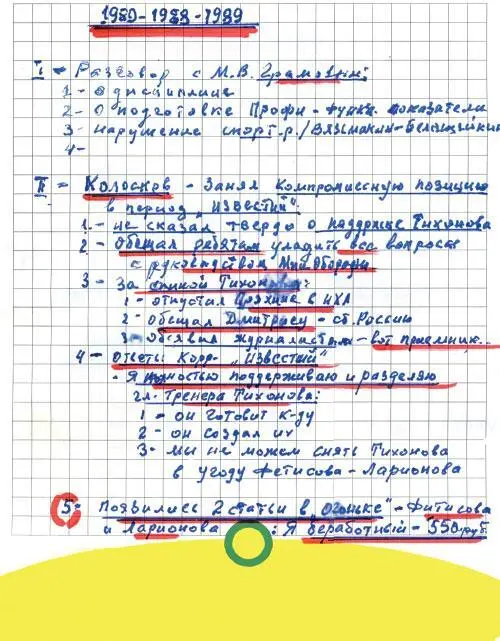 1980-1988-1989
I = Разговор с М.В. Грамовым:
1 - о дисциплине
2 - О подготовке Профи - функ. показатели
3 - нарушение спорт.р./Вязьмикин-Белошейкин
4-
II = Колосков - Занял компромиссную позицию
в период „ИЗВЕСТИЙ"
1 - не сказал твердо о поддержке Тихонова
2 - Обещал ребятам уладить все вопросы
с руководством Мин Обороны
3 - За спиной Тихонова:
1 - отпустил Пряхина в НХЛ
2 - обещал Дмитриеву - сб. России
3 - Объявил журналистам - вот приемник...
4 - ответы Корр- „Известий"
- Я полностью поддерживаю и разделяю
гл. тренера Тихонова:
1 - он готовит к-ду
2 - он создал их
3 - мы не можем снять Тихонова
в угоду Фетисова - Ларионова
5- Появились 2 статьи в „Огоньке" - Фитисова
и Ларионова : Я безработный - 550 руб.